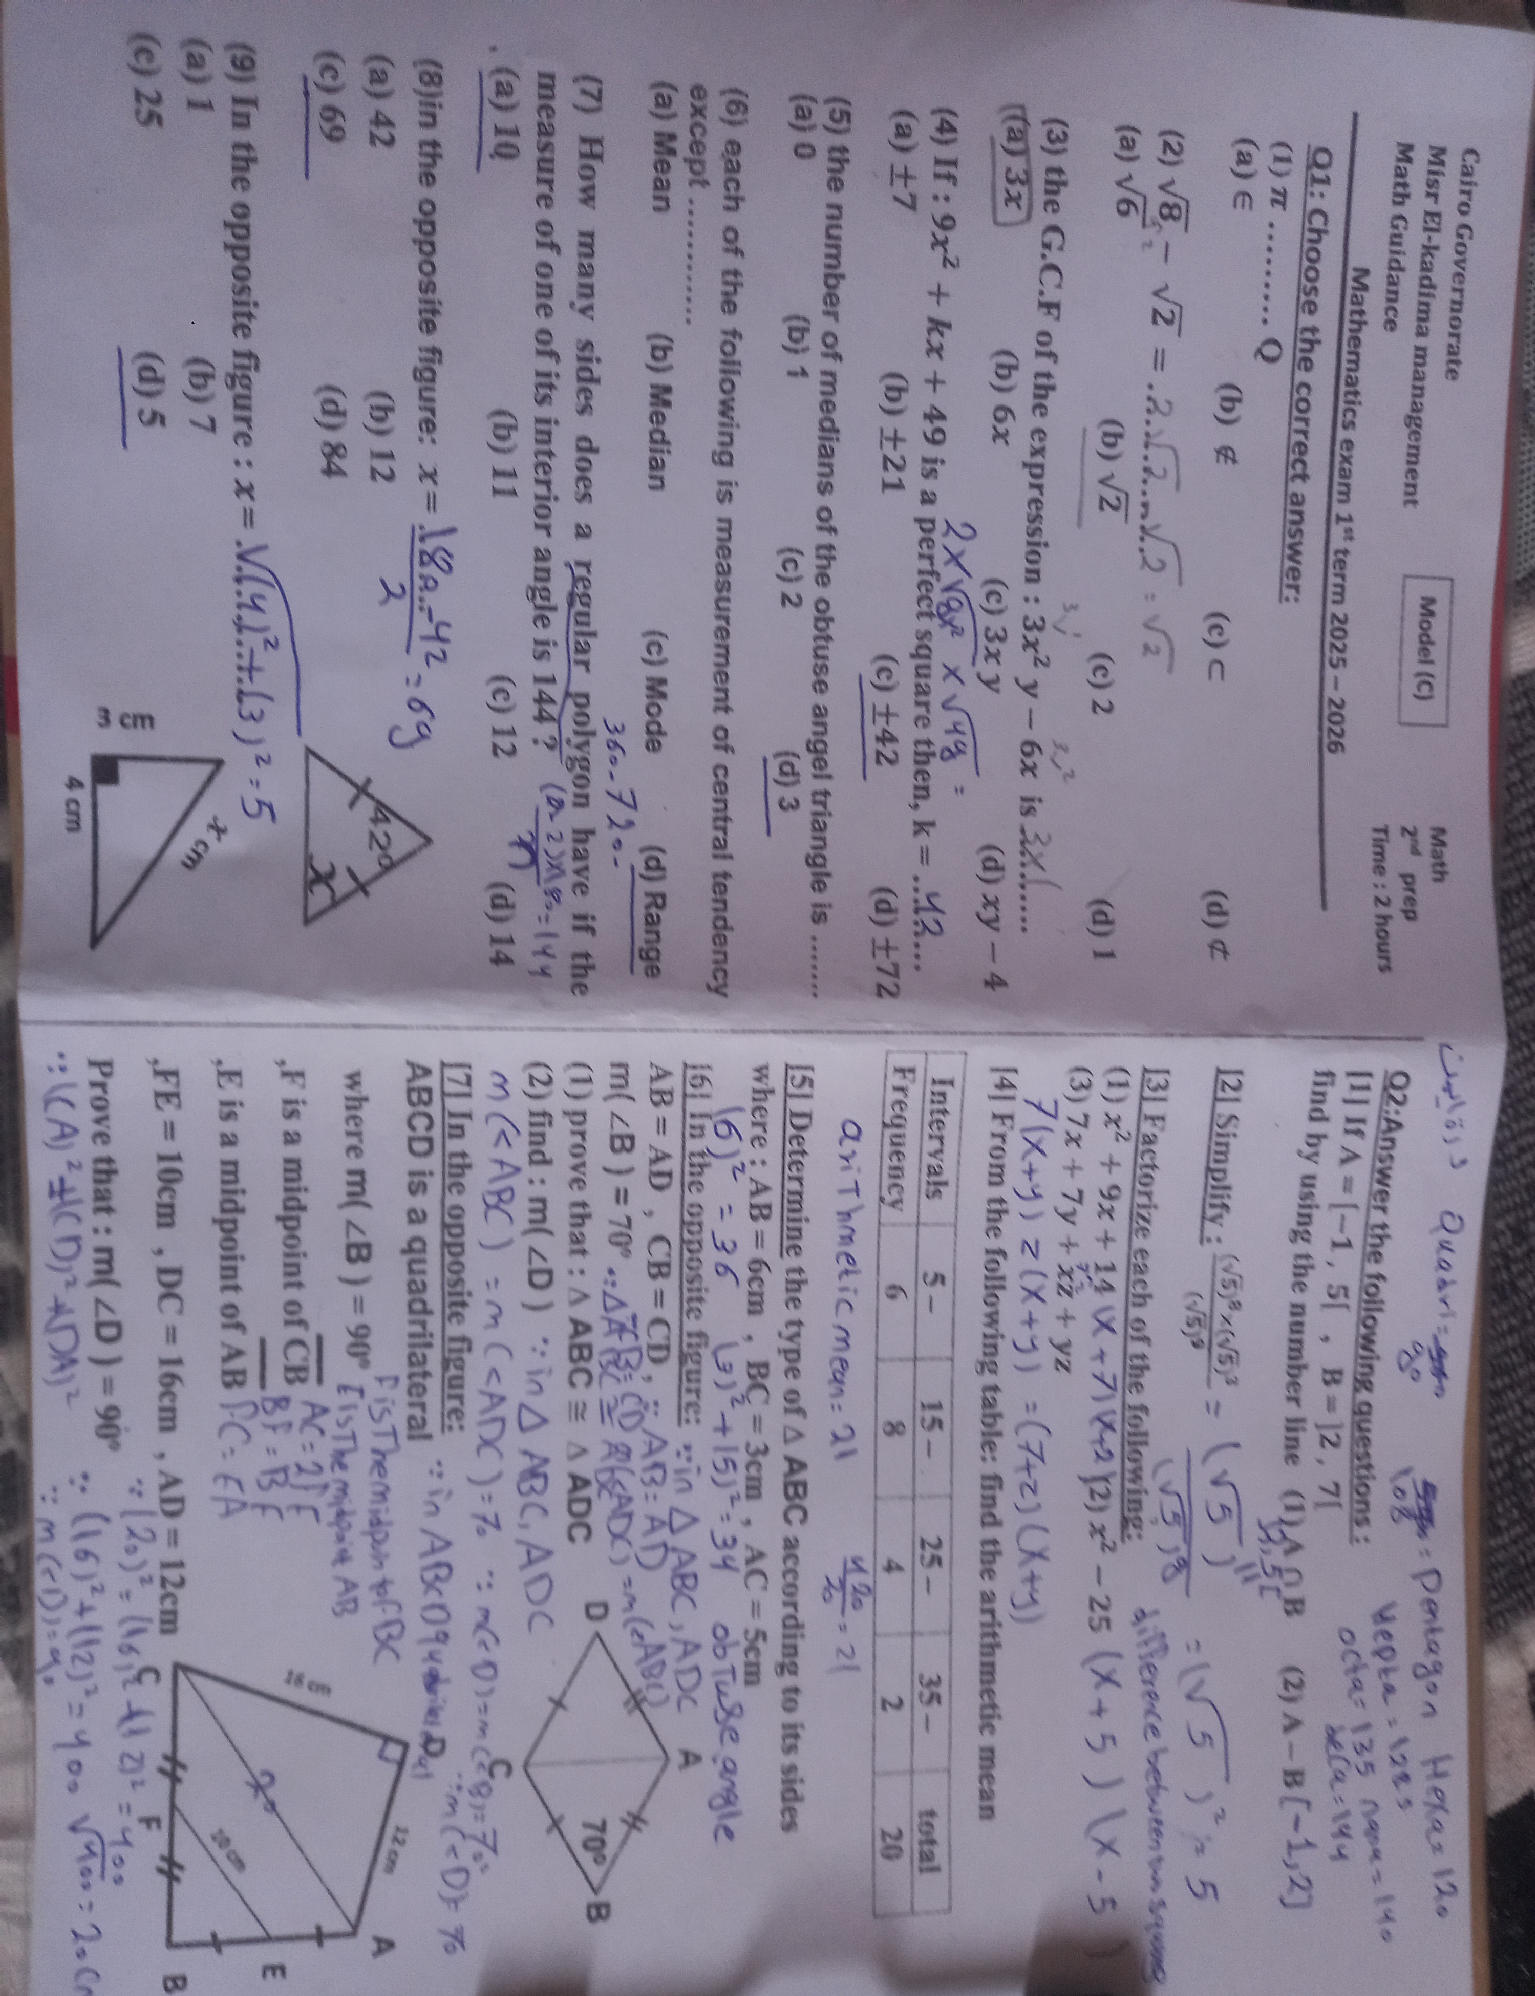 Cairo Governorate
Misr El-kadima management
Math Guidance
Model (C)
Math
2nd prep
Time : 2 hours
Mathematics exam 1st term 2025 – 2026
Q1: Choose the correct answer:
(1) π .......... Q
(a) ∈ (b) ∉ (c) ⊂ (d) ⊄
(2) √8 − √2 = 2√2 - √2 = √2
(a) √6 (b) √2 (c) 2 (d) 1
(3) the G.C.F of the expression : 3x² y − 6x is 3x
(a) 3x (b) 6x (c) 3x y (d) xy − 4
(4) If : 9x² + kx + 49 is a perfect square then, k = 42
2 x √9x² x √49 =
(a) ±7 (b) ±21 (c) ±42 (d) ±72
(5) the number of medians of the obtuse angel triangle is .......
(a) 0 (b) 1 (c) 2 (d) 3
(6) each of the following is measurement of central tendency
except ............
(a) Mean (b) Median (c) Mode (d) Range
(7) How many sides does a regular polygon have if the
measure of one of its interior angle is 144 ?
(a) 10 (b) 11 (c) 12 (d) 14
(8)in the opposite figure: x= 180-42 = 69
2
(a) 42 (b) 12
(c) 69 (d) 84
42°
x
(9) In the opposite figure : x= √(4)²+(3)² = 5
(a) 1 (b) 7
(c) 25 (d) 5
x cm
4 cm
Pentagon Hexa= 120
108
octa= 135 nona= 140
deca= 144
Q2:Answer the following questions :
[1] If A = [−1 , 5[ , B = ]2 , 7[
find by using the number line (1) A ∩ B (2) A − B [-1,2]
]2,5[
[2] Simplify : (√5)⁸×(√5)³ / (√5)⁹ = (√5)¹¹ / (√5)⁹ = (√5)² = 5
[3] Factorize each of the following:
difference between two square
(1) x² + 9x + 14 (x+7)(x+2) (2) x² − 25 (x+5)(x-5)
(3) 7x + 7y + xz + yz
7(x+y) z(x+y) = (7+z)(x+y)
[4] From the following table: find the arithmetic mean
Intervals 5 – 15 – 25 – 35 – total
Frequency 6 8 4 2 20
arithmetic mean = 21 420/20 = 21
[5] Determine the type of Δ ABC according to its sides
where : AB = 6cm , BC = 3cm , AC = 5cm
(6)² = 36 (3)² + (5)² = 34 obtuse angle
[6] In the opposite figure: ∵ in Δ ABC, ADC
AB = AD , CB = CD , ∵ AB = AD
m( ∠B ) = 70°
(1) prove that : Δ ABC ≅ Δ ADC
(2) find : m( ∠D ) ∵ in Δ ABC, ADC
m(<ABC) = m(<ADC) = 70
D A B C 70°
[7] In the opposite figure:
ABCD is a quadrilateral
where m( ∠B ) = 90°
,F is a midpoint of CB
,E is a midpoint of AB
,FE = 10cm , DC = 16cm , AD = 12cm
Prove that : m( ∠D ) = 90°
F is the midpoint of BC
E is the midpoint AB
BF = BF
∵ (20)² = (16)² + (12)² = 400
∵ (16)² + (12)² = 400 √400 = 20cm
D A E B F C
16 cm 12 cm 10 cm